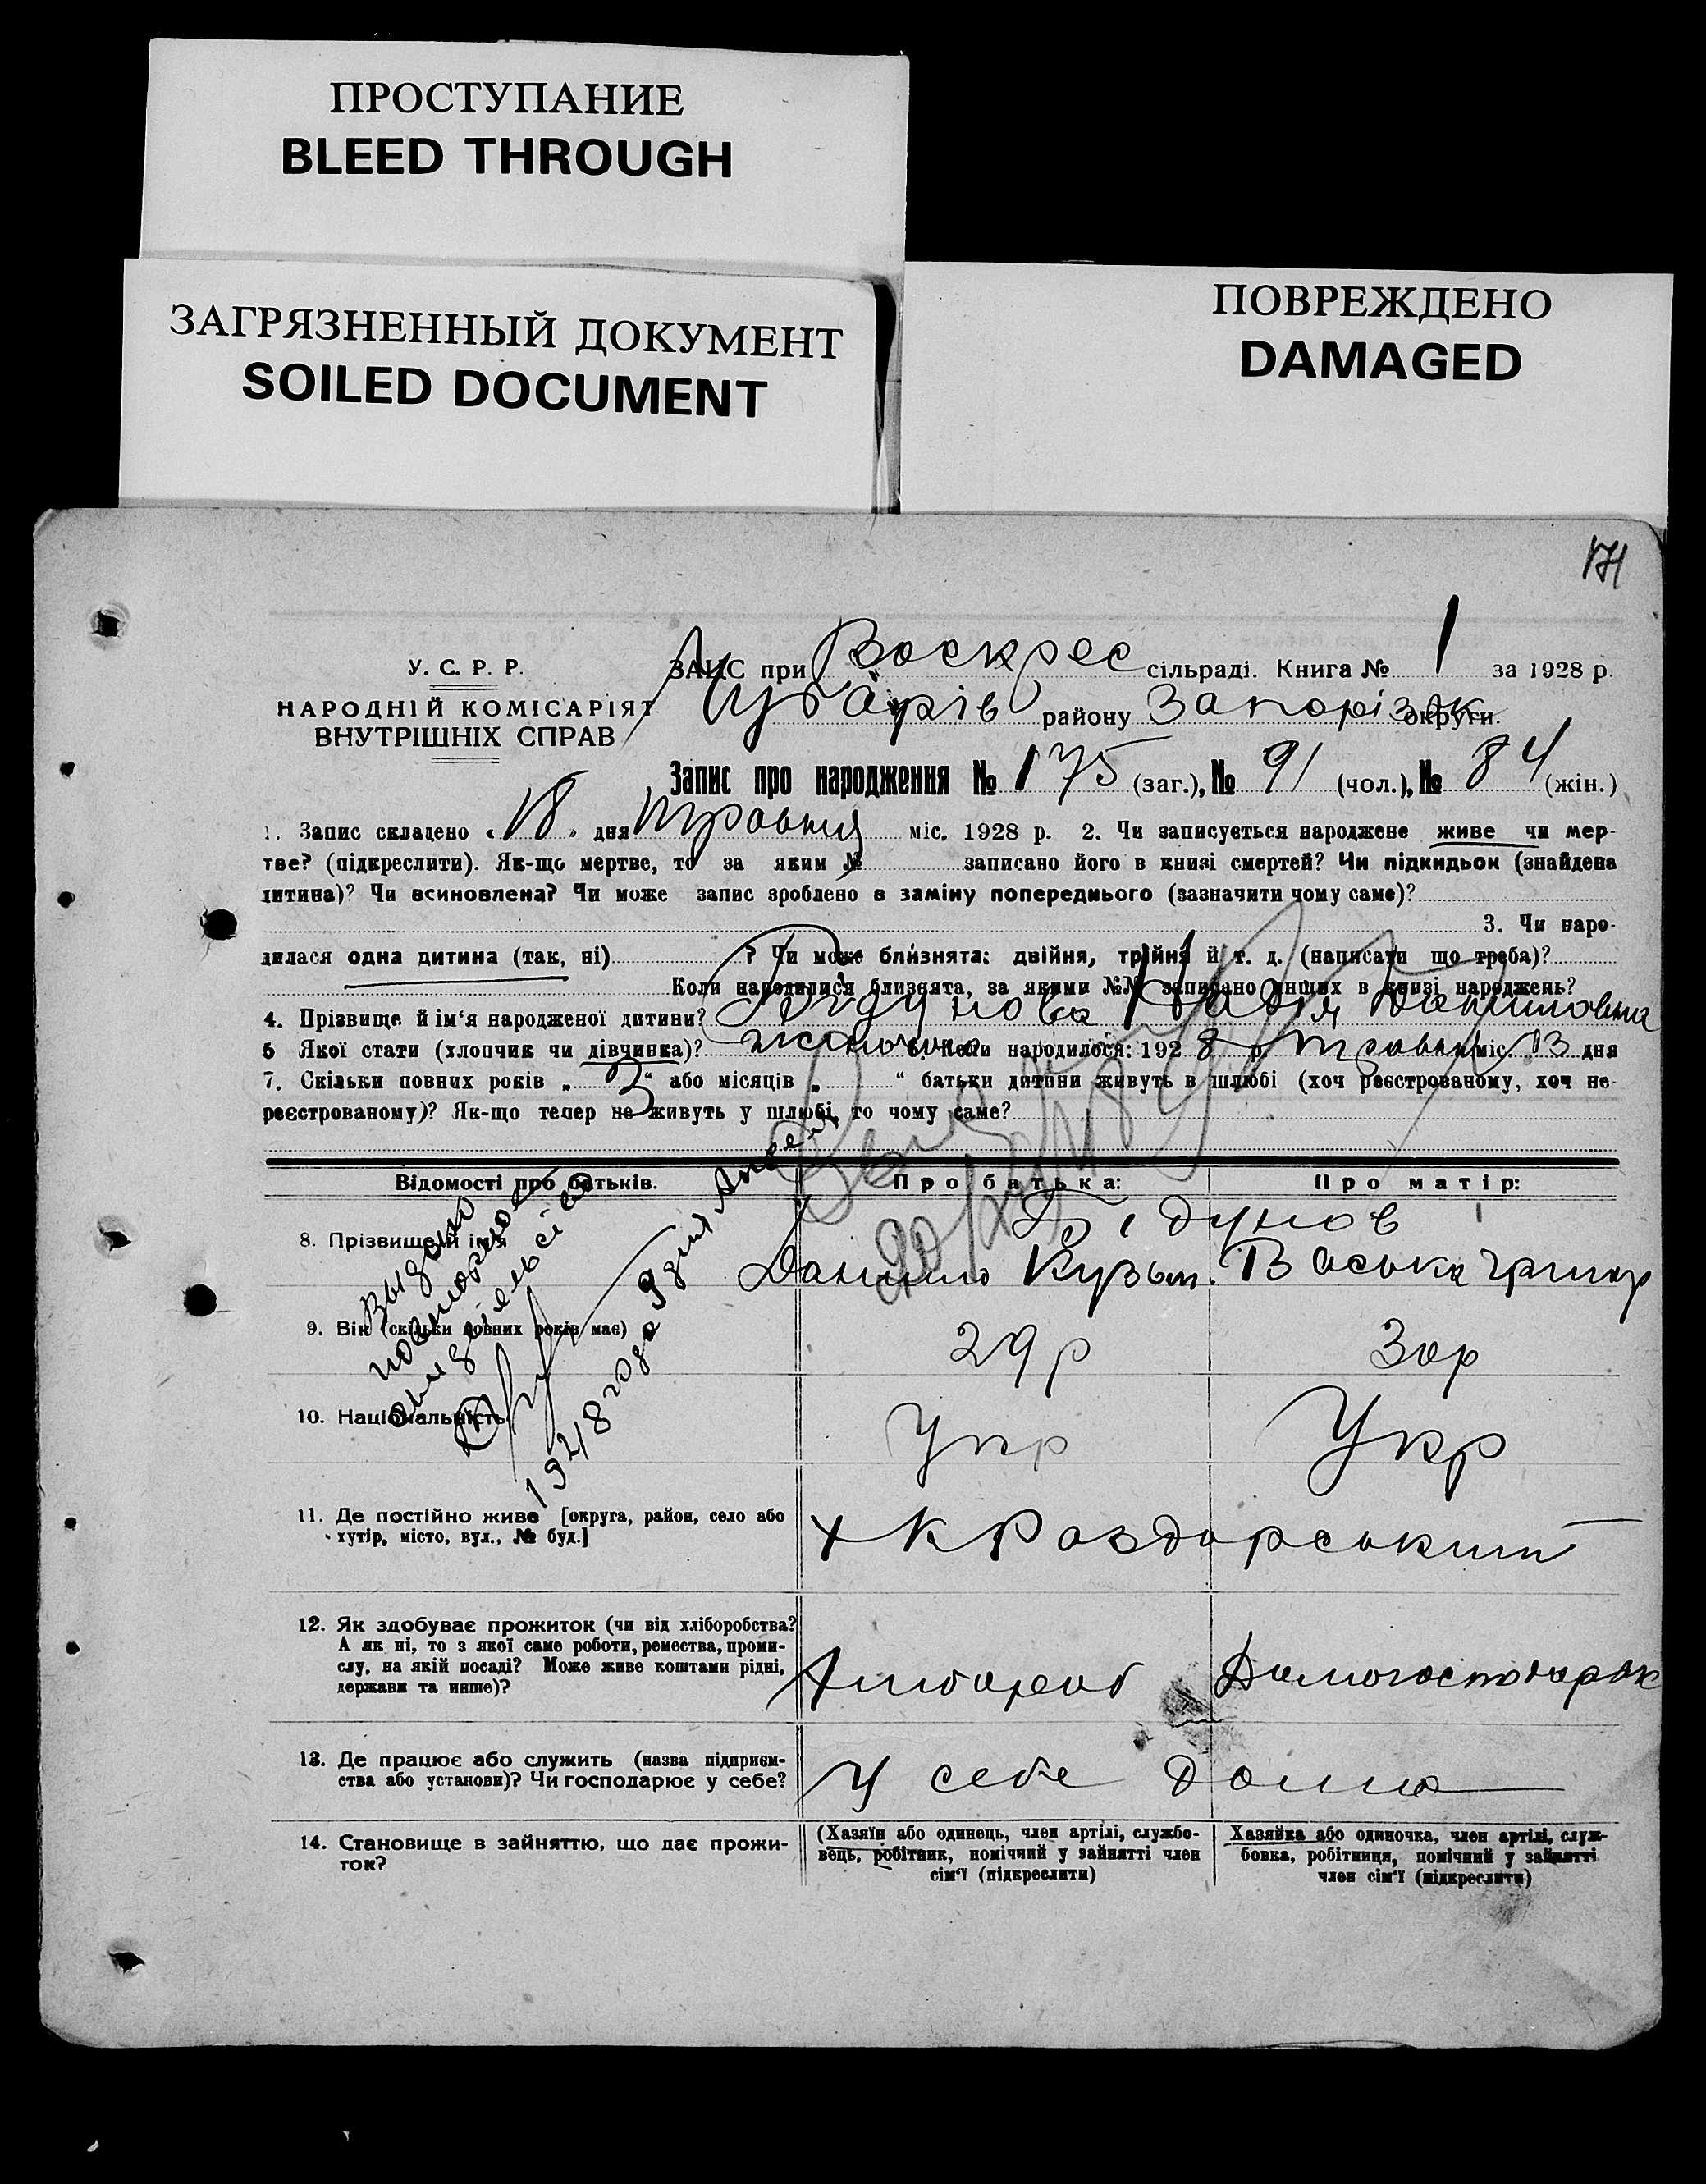 ПРОСТУПАНИЕ
BLEED THROUGH
ЗАГРЯЗНЕННЫЙ ДОКУМЕНТ
SOILED DOCUMENT
ПОВРЕЖДЕНО
DAMAGED
171
У. С. Р. Р.
НАРОДНІЙ КОМІСАРІЯТ
ВНУТРІШНІХ СПРАВ
ЗАЦС при Воскрес сільраді. Книга № 1 за 1928 р.
району Запорізьк округи.
Запис про народження № 175 (заг.), № 91 (чол.), № 84 (жін.)
1. Запис складено « 18 » дня травня міс. 1928 р. 2. Чи записується народжене живе чи мер-
тве? (підкреслити). Як-що мертве, то за яким № записано його в книзі смертей? Чи підкидьок (знайдена
дитина)? Чи всиновлена? Чи може запис зроблено в заміну попереднього (зазначити чому саме)?
3. Чи наро-
дилася одна дитина (так, ні) ? Чи може близнята: двійня, трійня й т. д. (написати що треба)?
Коли народилися близнята, за якими №№ записано инших в книзі народжень?
4. Прізвище й ім'я народженої дитини? Надія Даниловна
5 Якої стати (хлопчик чи дівчинка)? жіночого 6. Коли народилося: 1928 р. травня міс. 13 дня
7. Скільки повних років „ 3 “ або місяців „ “ батьки дитини живуть в шлюбі (хоч реєстрованому, хоч не-
реєстрованому)? Як-що тепер не живуть у шлюбі, то чому саме?
Відомості про батьків.
Про батька:
Про матір:
8. Прізвище й ім'я
Бідунов
Данило Кузьм. Васька Григор
Выдано
повторное
свидетельство
1948 года 9 дня
9. Вік (скільки повних років має)
29 р
30 р
10. Національність
Укр
Укр
11. Де постійно живе [округа, район, село або
хутір, місто, вул., № буд.]
х К Роздорський
12. Як здобуває прожиток (чи від хліборобства?
А як ні, то з якої саме роботи, ремества, проми-
слу, на якій посаді? Може живе коштами рідні,
держави та инше)?
Хлібороб
Домогосподарк
13. Де працює або служить (назва підприєм-
ства або установи)? Чи господарює у себе?
У себе дома
14. Становище в зайняттю, що дає прожи-
ток?
(Хазяїн або одинець, член артілі, службо-
вець, робітник, помічний у зайнятті член
сім'ї (підкреслити)
Хазяйка або одиночка, член артілі, служ-
бовка, робітниця, помічний у зайнятті
член сім'ї (підкреслити)